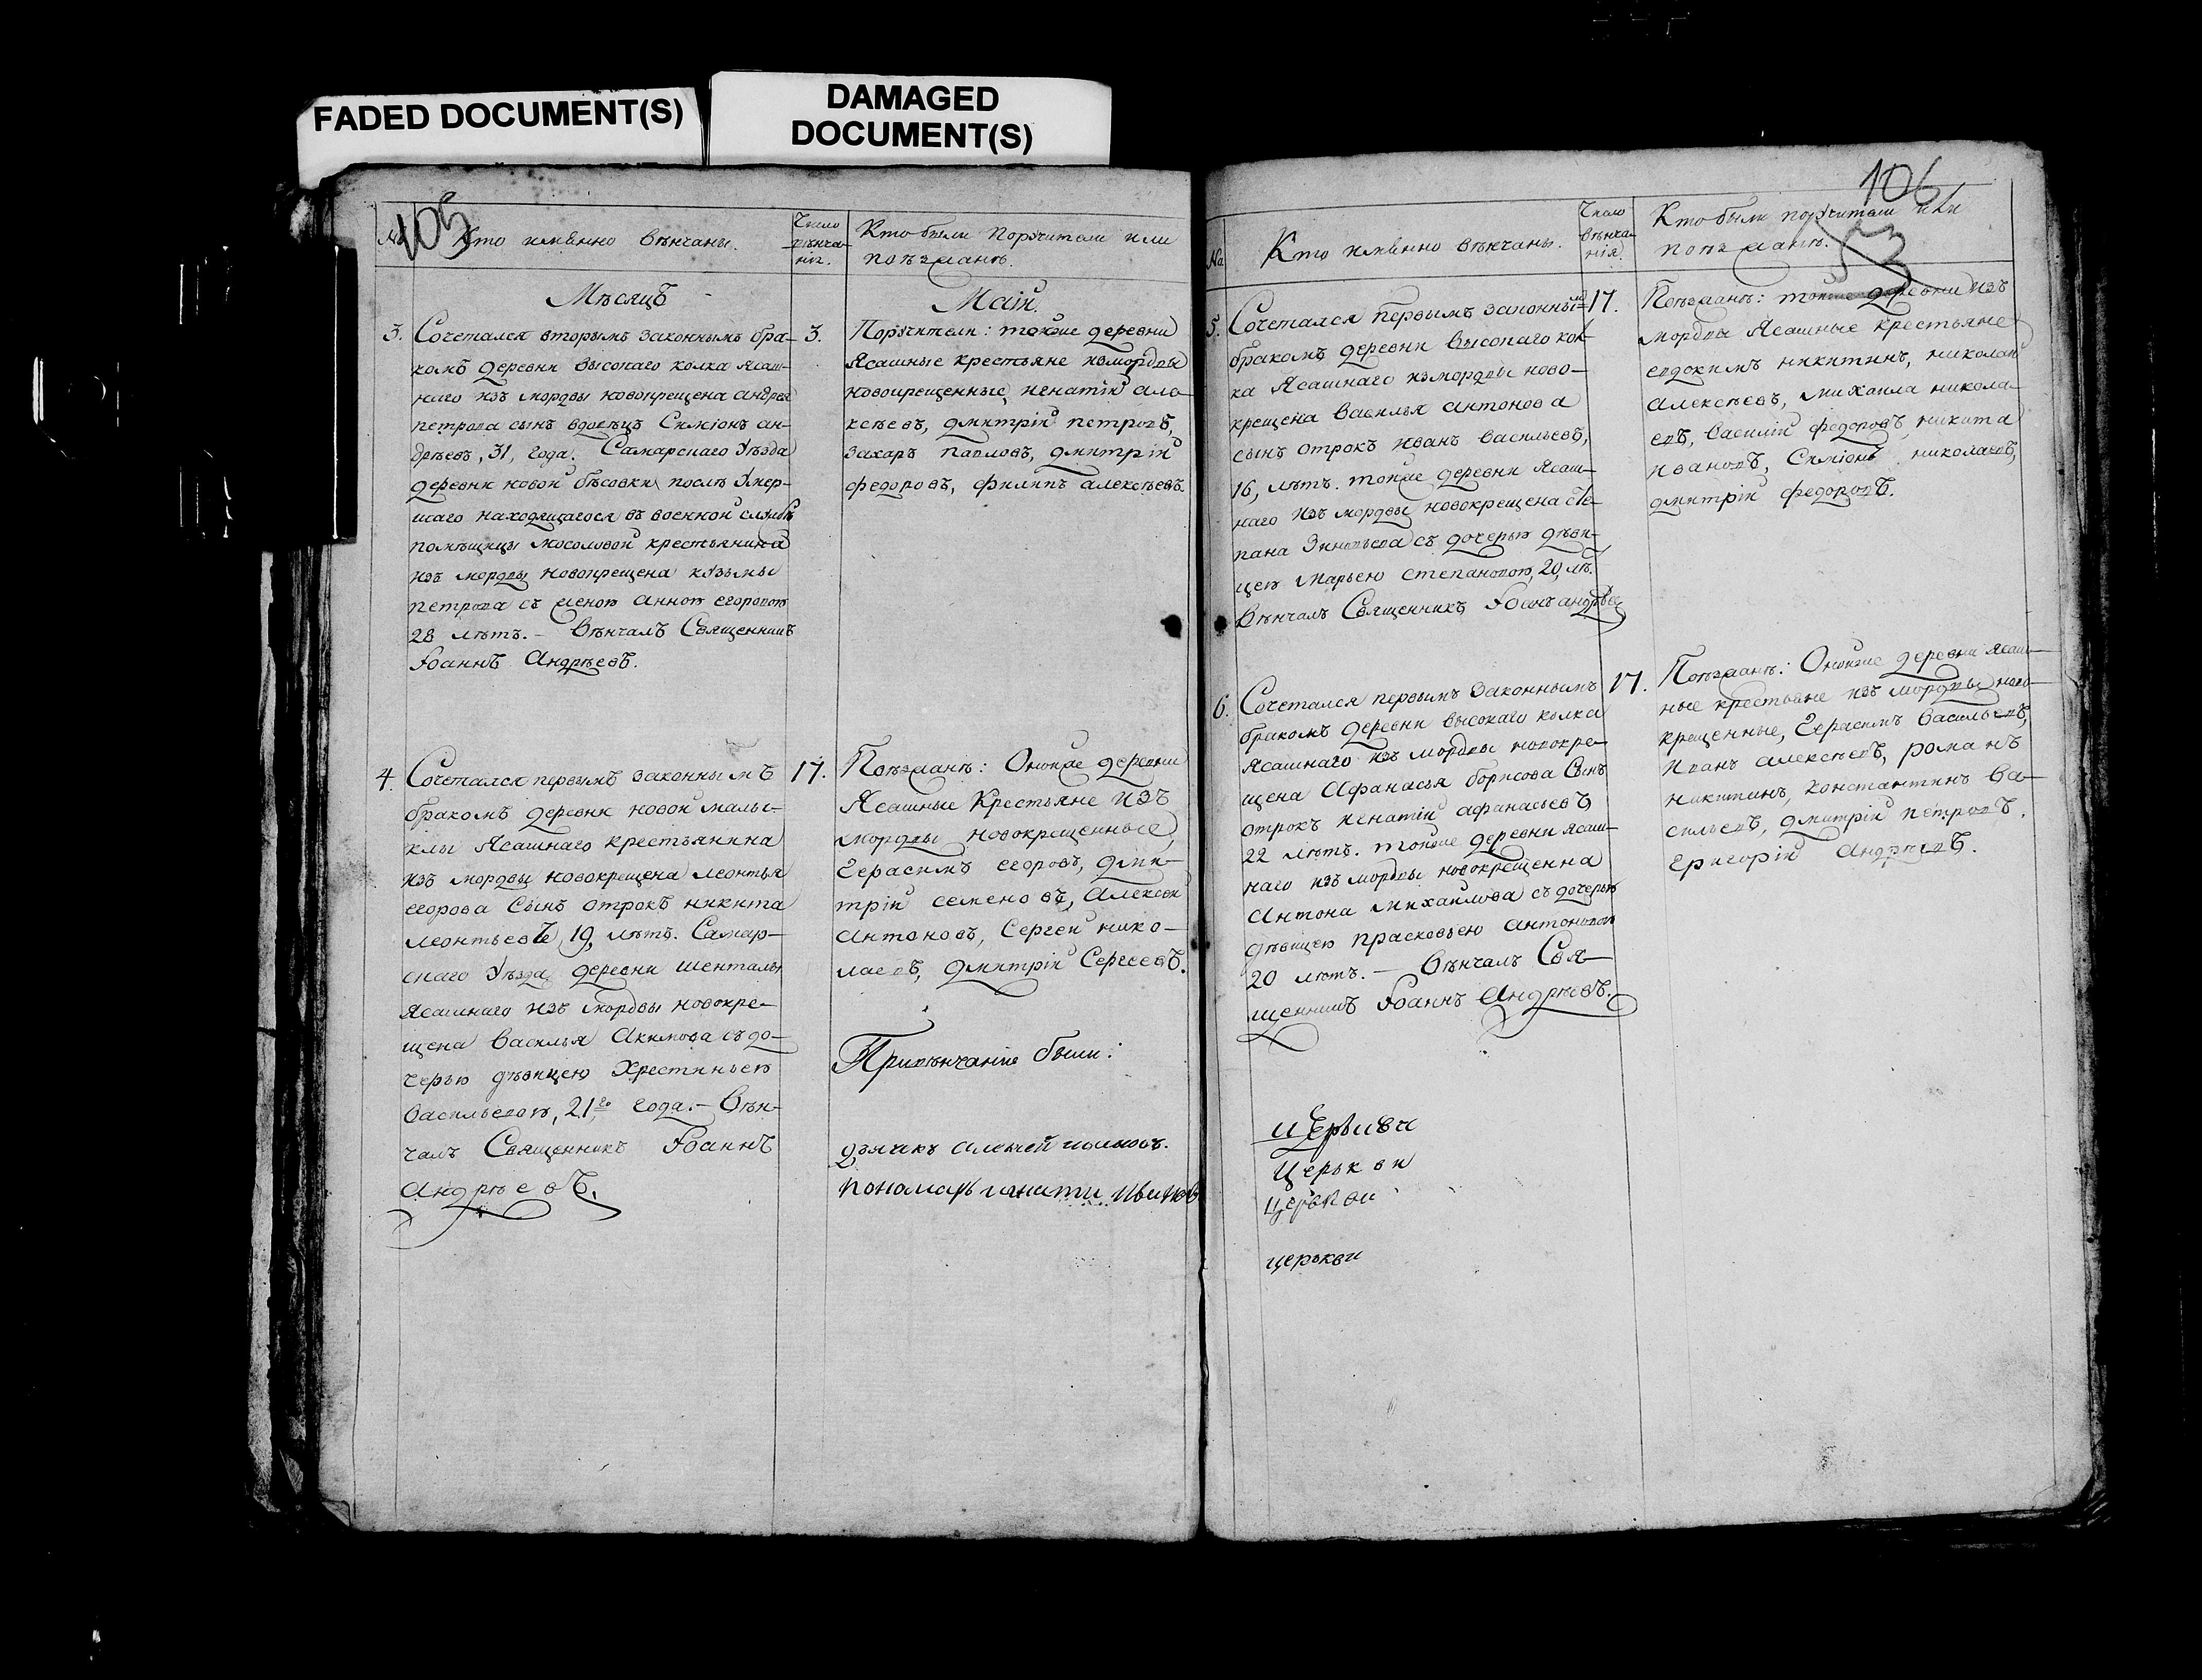 FADED DOCUMENT(S)
DAMAGED
DOCUMENT(S)
105
№
Кто имѣнно вѣнчаны.
Число
вѣнча-
нія.
Кто были порꙋчители или
поѣзжанѣ.
Мѣсяцъ
Маій
3.
Сочетался вторымъ законнымъ бра-
комъ деревни высокаго колка ясаш-
наго изъ мордвы новокрещена андрея
петрова сынъ вдовецъ Симіонъ ан-
дрѣевъ, 31, года. Самарскаго Уѣзда
деревни новой бѣсовки послѣ Умер-
шаго находящагося въ военной службѣ
помѣщицы мосоловой крестьянина
изъ мордвы новокрещена кузьмы
петрова съ женою анною егоровою
28 лѣтъ. – Вѣнчалъ Священникъ
Іоаннъ Андрѣевъ.
3.
Порꙋчители: тоюже деревни
Ясашные крестьяне измордвы
новокрещенные, игнатій але-
ксѣевъ, дмитрій петровъ,
захаръ павловъ, дмитрій
федоровъ, филипъ алексѣевъ.
4.
Сочетался первымъ законнымъ
бракомъ деревни новой малы-
клы Ясашнаго крестьянина
изъ мордвы новокрещена леонтья
егорова Сынъ отрокъ никита
леонтьевъ, 19, лѣтъ. Самар-
скаго Уѣзда деревни шенталы
Ясашнаго изъ мордвы новокре-
щена Василья Акимова съ до-
черью дѣвицею Хрестиньею
Васильевою, 21го года. – Вѣн-
чалъ Священникъ Іоаннъ
Андрѣевъ.
17.
Поѣзжанѣ: Оноюже деревни
Ясашные Крестьяне изъ
мордвы новокрещенные,
Герасимъ егоровъ, дми-
трій семеновъ, Алексей
Антоновъ, Сергей нико-
лаевъ, дмитрій Сергеевъ.
Привѣнчаніе были:
дьячикъ алексей
пономарь игнати ивановъ
106
53
№
Кто имѣнно вѣнчаны.
Число
вѣнча-
нія.
Кто были порꙋчители или
поѣзжанѣ.
5.
Сочетался первымъ законнымъ
бракомъ деревни высокаго кол-
ка Ясашнаго измордвы ново-
крещена Василья антонова
сынъ отрокъ иванъ васильевъ,
16, лѣтъ. тоюже деревни ясаш-
наго изъ мордвы новокрещена сте-
пана съ дочерью дѣви-
цею Марьею степановою, 20, лѣ.
Вѣнчалъ Священникъ Іоанъ андрѣев
17.
Поѣзжанѣ: тоюже деревни изъ
мордвы Ясашные крестьяне
евдокимъ никитинъ, николай
Алексѣевъ, михаила никола-
евъ, василій федоровъ, никита
ивановъ, Симіонъ николаевъ,
дмитрій федоровъ.
6.
Сочетался первымъ законнымъ
бракомъ деревни высокаго колка
Ясашнаго изъ мордвы новокре-
щена Афанасья борисова Сынъ
отрокъ игнатій афанасьевъ,
22 лѣтъ. тоюже деревни ясаш-
наго изъ мордвы новокрещенна
Антона михаилова съ дочерью
дѣвицею прасковьею антоновою
20 лѣтъ. – Вѣнчалъ Свя-
щенникъ Іоаннъ Андрѣевъ.
17.
Поѣзжанѣ: Оноюже деревни ясаш-
ные крестьяне изъ мордвы ново-
крещенные, Герасимъ васильевъ,
иванъ алексѣевъ, романъ
никитинъ, константинъ ва-
сильевъ, дмитрій петровъ,
григорій Андрѣевъ.
церькви
церькви
церькви
церькви